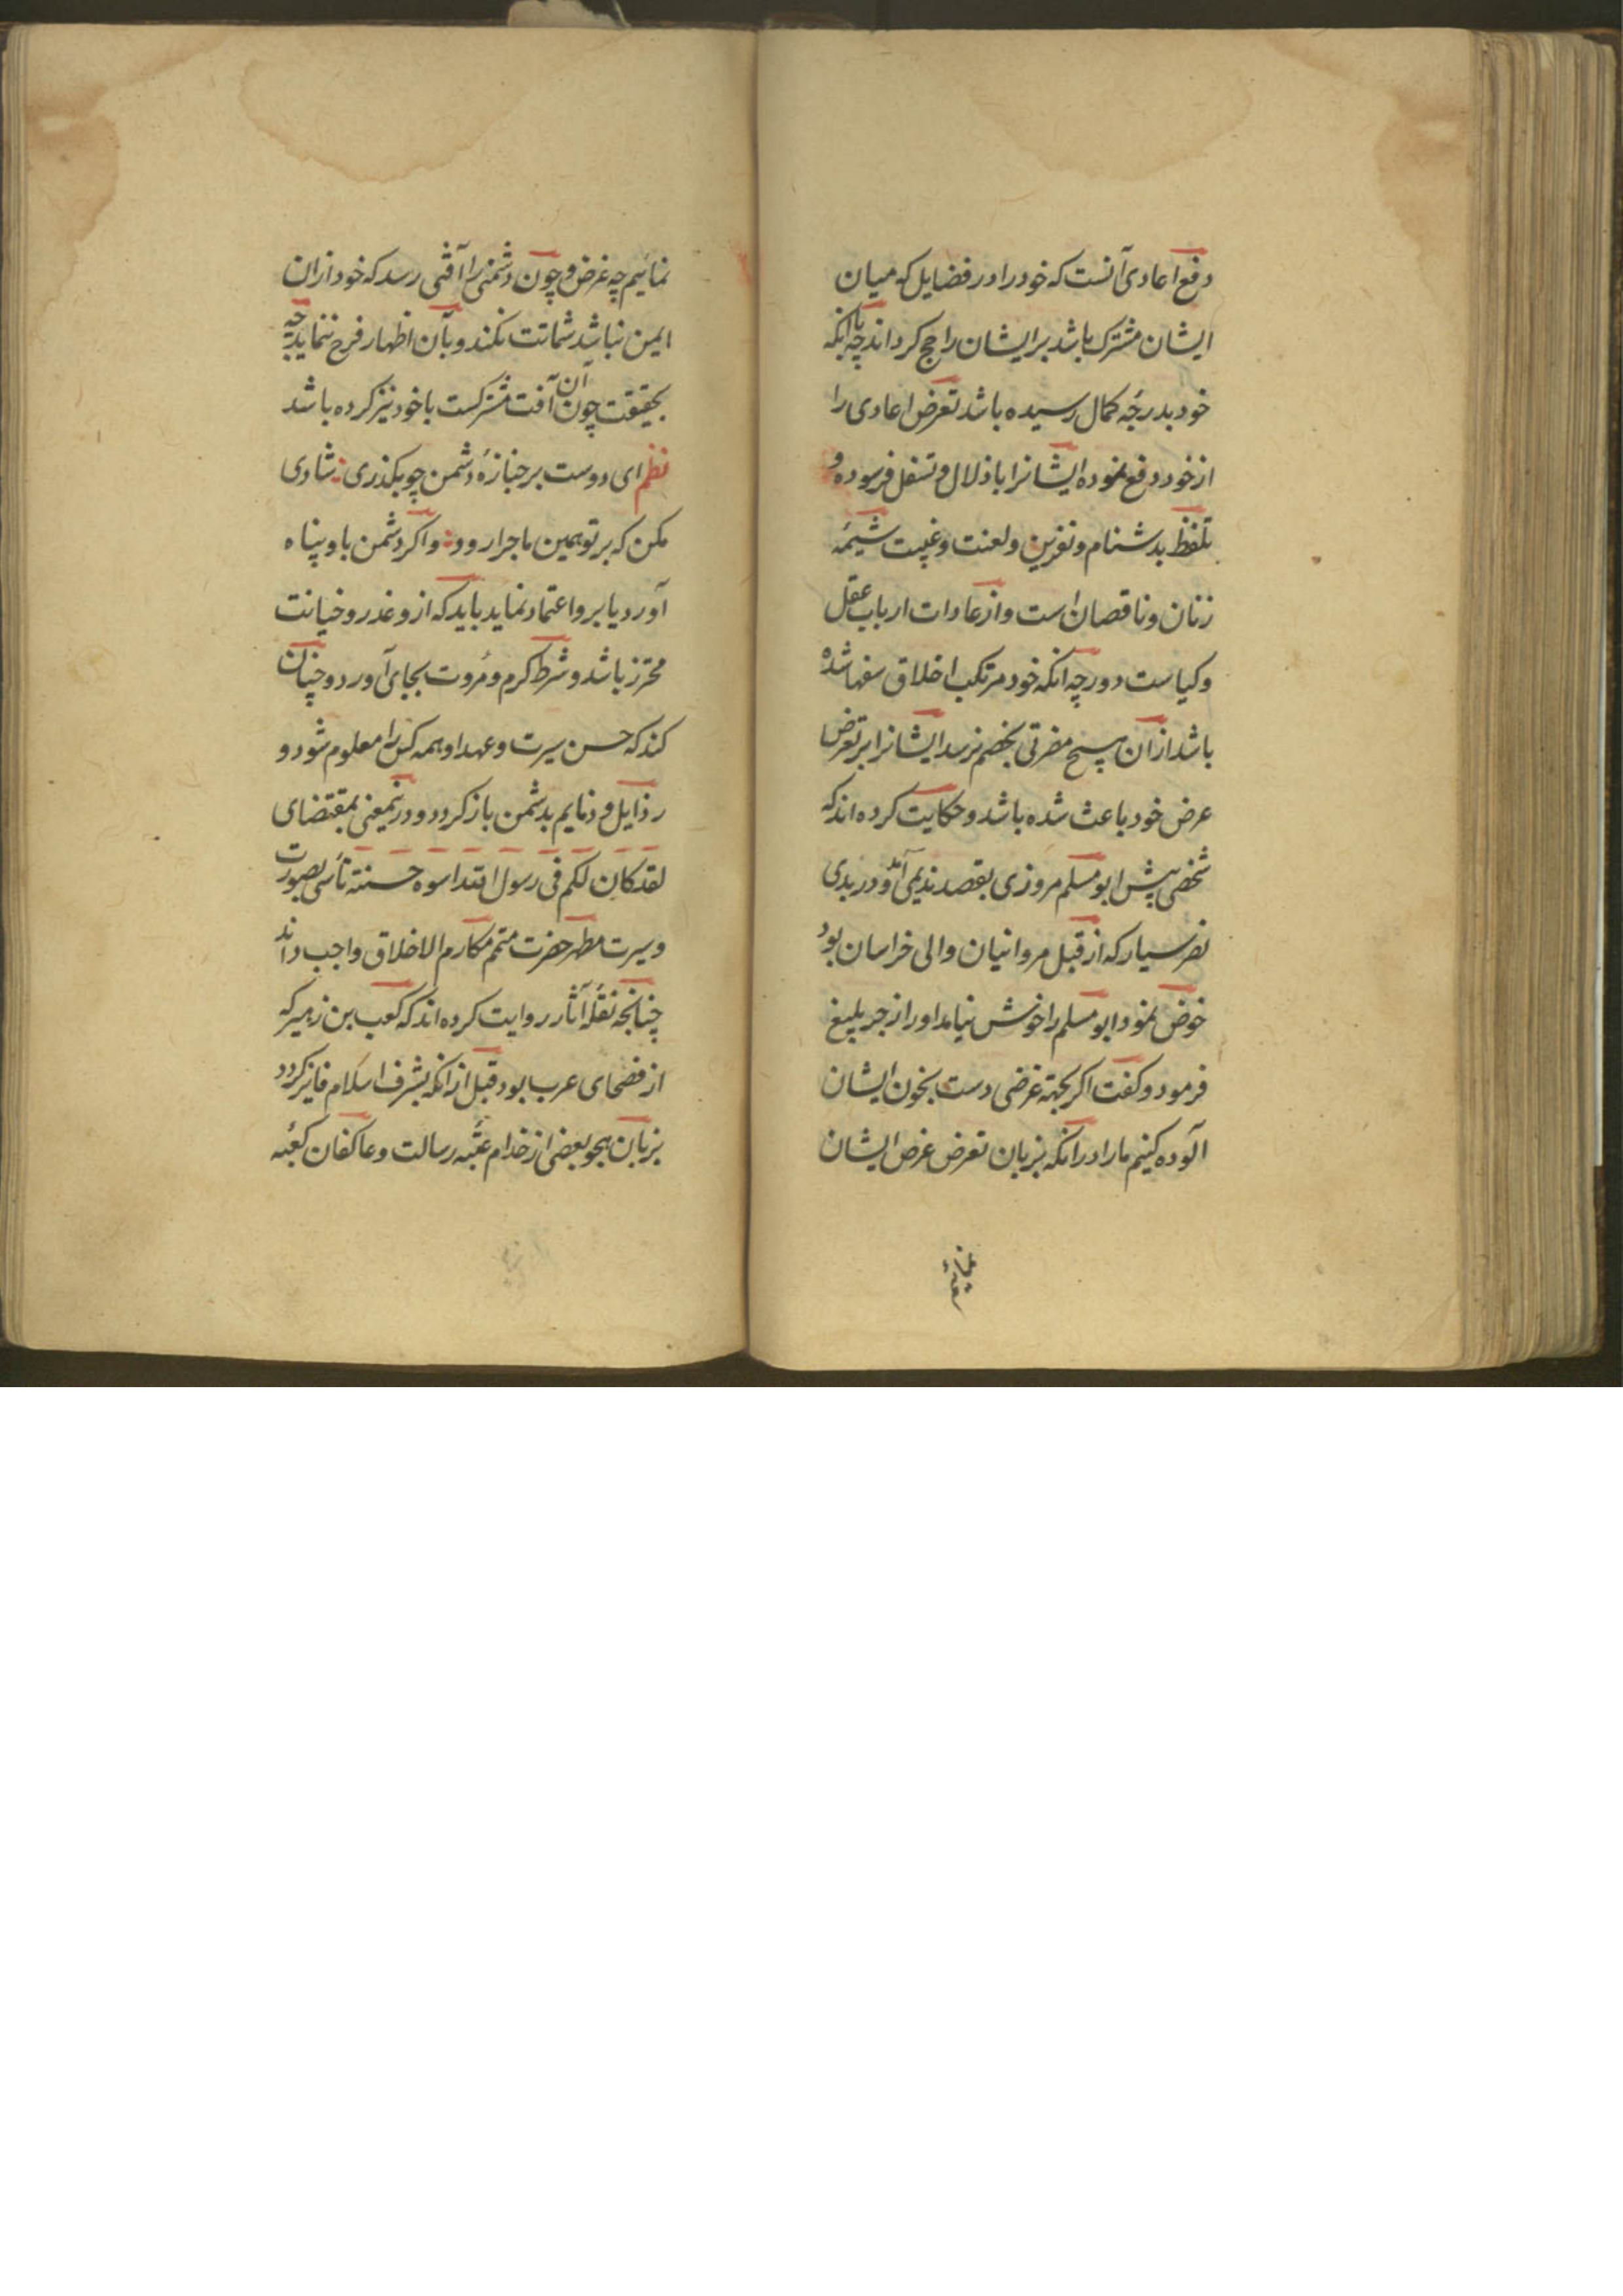 دفع اعادی آنست که خود را در فضایل که میان
ایشان مشترک باشد بر ایشان راجح کرداند چه با انکه
خود بدرجۀ کمال رسیده باشد تعرض اعادی را
از خود دفع نموده ایشانرا باذلال و تسفل فرسوده و
تلفظ بدشنام و نفرین و لعنت و غیبت شیمۀ
زنان و ناقصان است و از عادات ارباب عقل
و کیاست دور چه انکه خود مرتکب اخلاق سفها شده
باشد از ان هیچ مضرتی بخصم نرسد ایشانرا بر تعرض
عرض خود باعث شده باشد و حکایت کرده اند که
شخصی پیش ابو مسلم مروزی بقصد ندیمی آمد و در بدی
نصر سیار که از قبل مروانیان والی خراسان بود
خوض نمود ابو مسلم را خوش نیامد او را زجر بلیغ
فرمود و کفت اکر بجهته غرضی دست بخون ایشان
آلوده کنیم ما را در انکه بزبان تعرض عرض ایشان
نمائیم چه غرض و چون دشمنی را آفتی رسد که خود از ان
ایمن نباشد شماتت نکند و بآن اظهار فرح ننماید چه
بحقیقت چون آن آفت مشترکست با خود نیز کرده باشد
نظم ای دوست بر جنازۀ دشمن چو بکذری شادی
مکن که بر تو همین ماجرا رود و اکر دشمن باو پناه
آورد یا برو اعتماد نماید باید که از و غدر و خیانت
محترز باشد و شرط کرم و مُروت بجای آورد و چنان
کند که حسن سیرت و عهد او همه کس را معلوم شود و
رذایل و ذمایم بدشمن باز کردد و درینمعنی بمقتضای
لقد کان لکم فی رسول الله اسوه حسنته تأسی بصورت
و سیرت مطهر حضرت متمم مکارم الاخلاق واجب داند
چنانچه نقلۀ آثار روایت کرده اند که کعب بن زهیر که
از فصحای عرب بود قبل از انکه بشرف اسلام فایز کردد
بزبان هجو بعضی از خدام عتبۀ رسالت و عاکفان کعبۀ